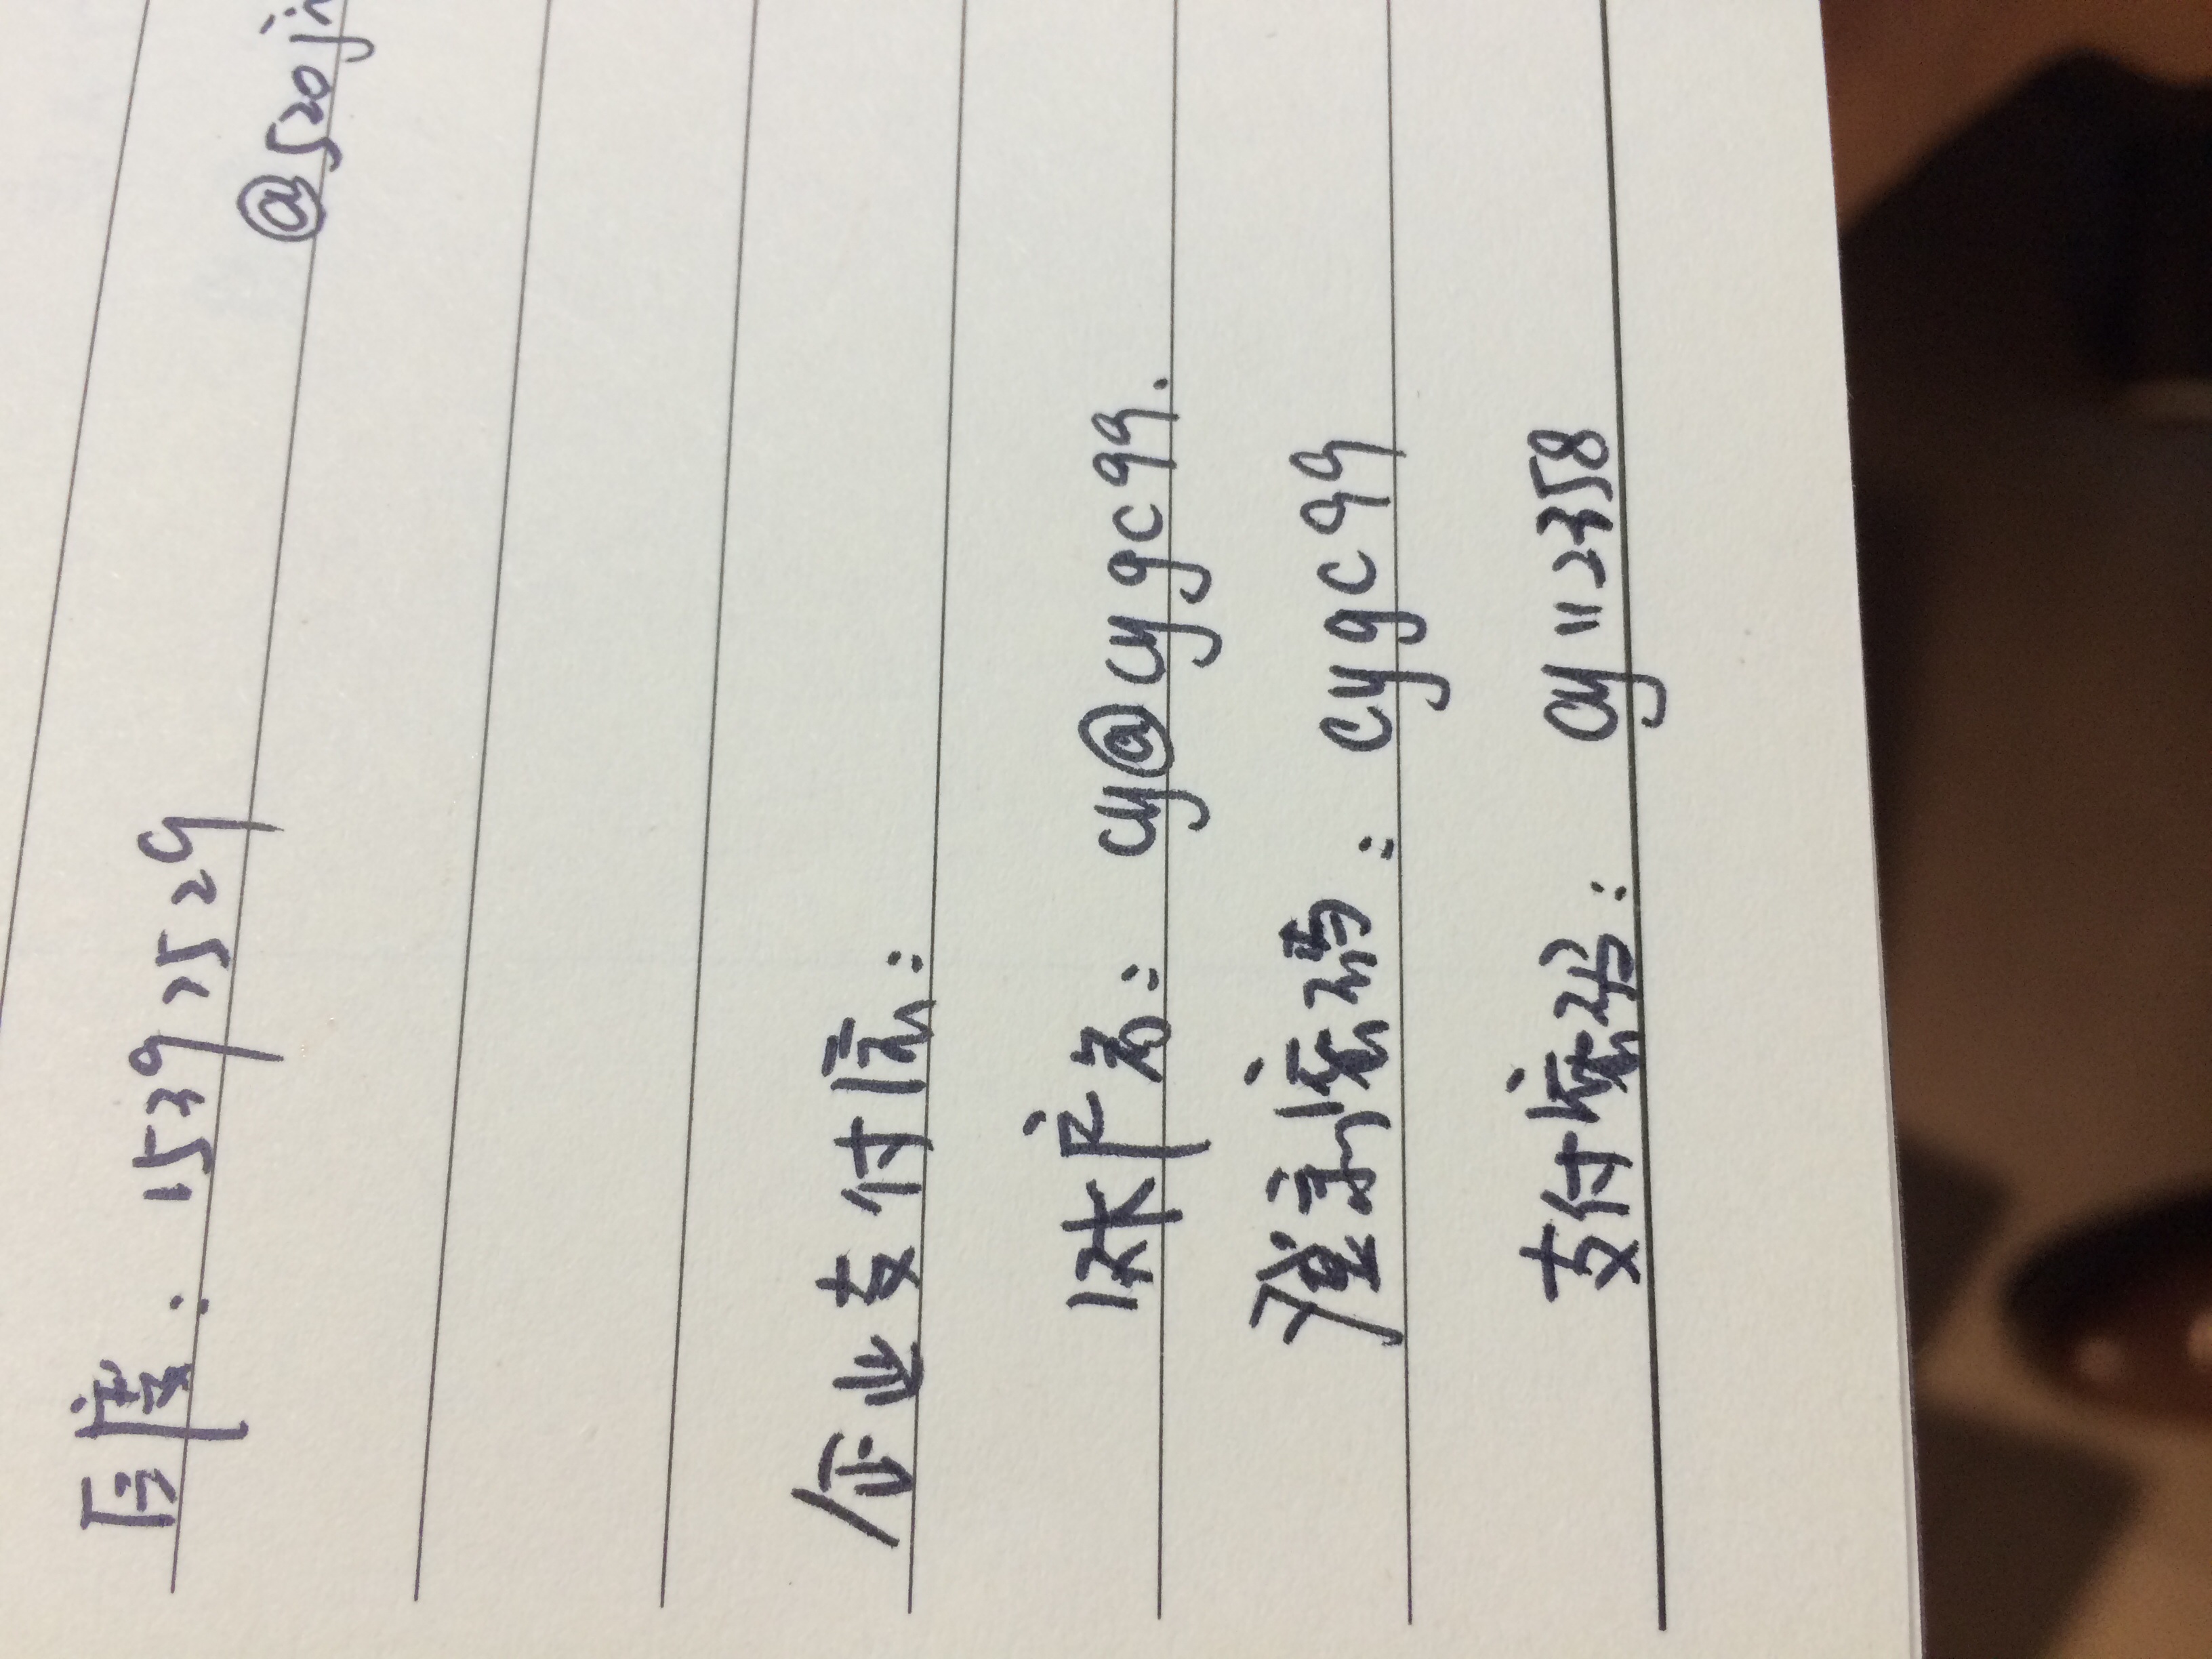 百度: 15397529
@520ji
企业支付宝:
账户名: cy@cygc99.
登录密码: cygc99
支付密码: cy112358